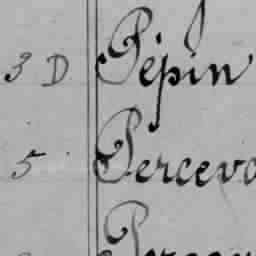 3 D Pépin
5 Perceva